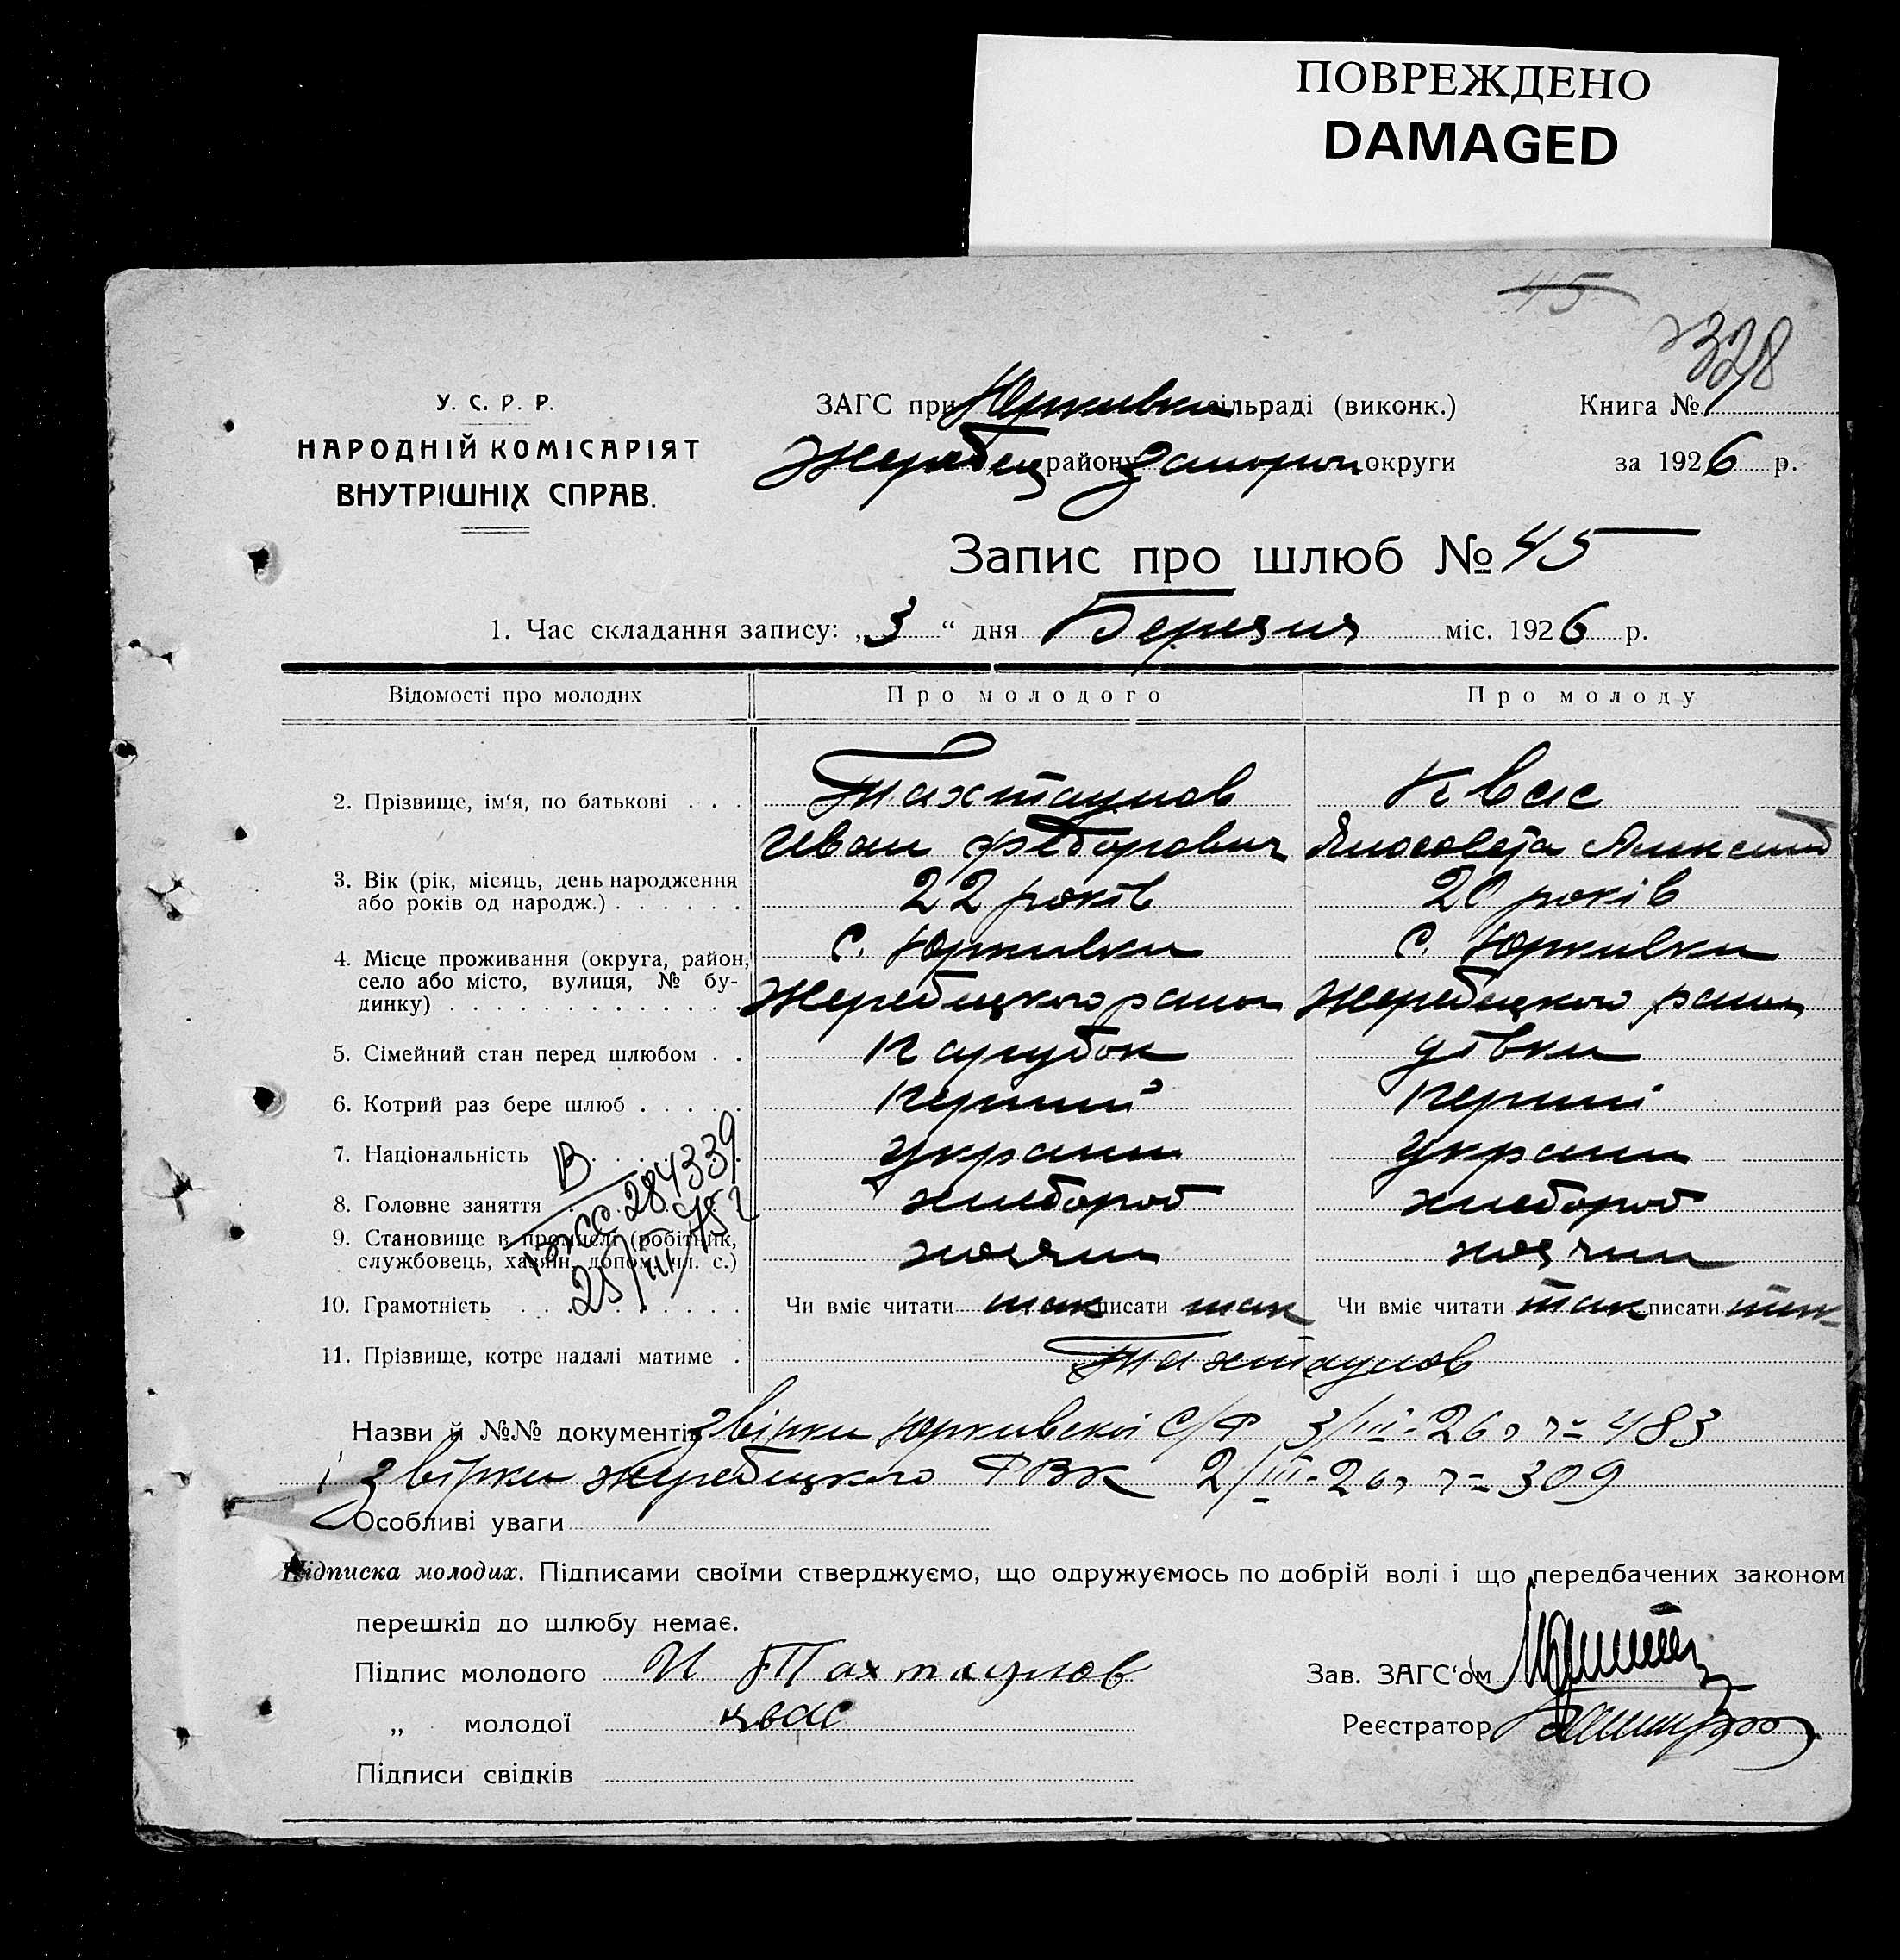 ПОВРЕЖДЕНО
DAMAGED
45
328
У. С. Р. Р.
НАРОДНІЙ КОМІСАРІЯТ
ВНУТРІШНІХ СПРАВ.
ЗАГС при Юркивки сільраді (виконк.)
Книга №
Жеребец району Запорож округи
за 1926 р.
Запис про шлюб № 45
1. Час складання запису: „3“ дня Березня міс. 1926 р.
Відомості про молодих
Про молодого
Про молоду
2. Прізвище, ім‘я, по батькові . . .
Тахтаулов
Квас
Иван Федорович
3. Вік (рік, місяць, день народження
або років од народж.) . . . . . .
22 років
20 років
4. Місце проживання (округа, район,
село або місто, вулиця, № бу-
динку) . . . . . . . . . . . . .
с. Юркивки
с. Юркивки
Жеребецкого
Жеребецкого
5. Сімейний стан перед шлюбом . .
Парубок
дівка
6. Котрий раз бере шлюб . . . . .
Перший
Перши
7. Національність
украин
украин
8. Головне заняття
хлебороб
хлебороб
9. Становище в промислі (робітник,
службовець, хазяїн, допом. чл. с.)
хозяин
хозяин
В
284339
10. Грамотність . . . . . . . . . .
Чи вміє читати так писати так
Чи вміє читати так писати так
11. Прізвище, котре надалі матиме .
Тахтаулов
Назви й №№ документів звірки Юркивскоі С/Р 3/III-26 483
і звірки жеребецкого РВК 2/III-26 309
Особливі уваги
Підписка молодих. Підписами своїми стверджуємо, що одружуємось по добрій волі і що передбачених законом
перешкід до шлюбу немає.
Підпис молодого И Тахтаулов
Зав. ЗАГС‘ом
„ молодої квас
Реєстратор
Підписи свідків